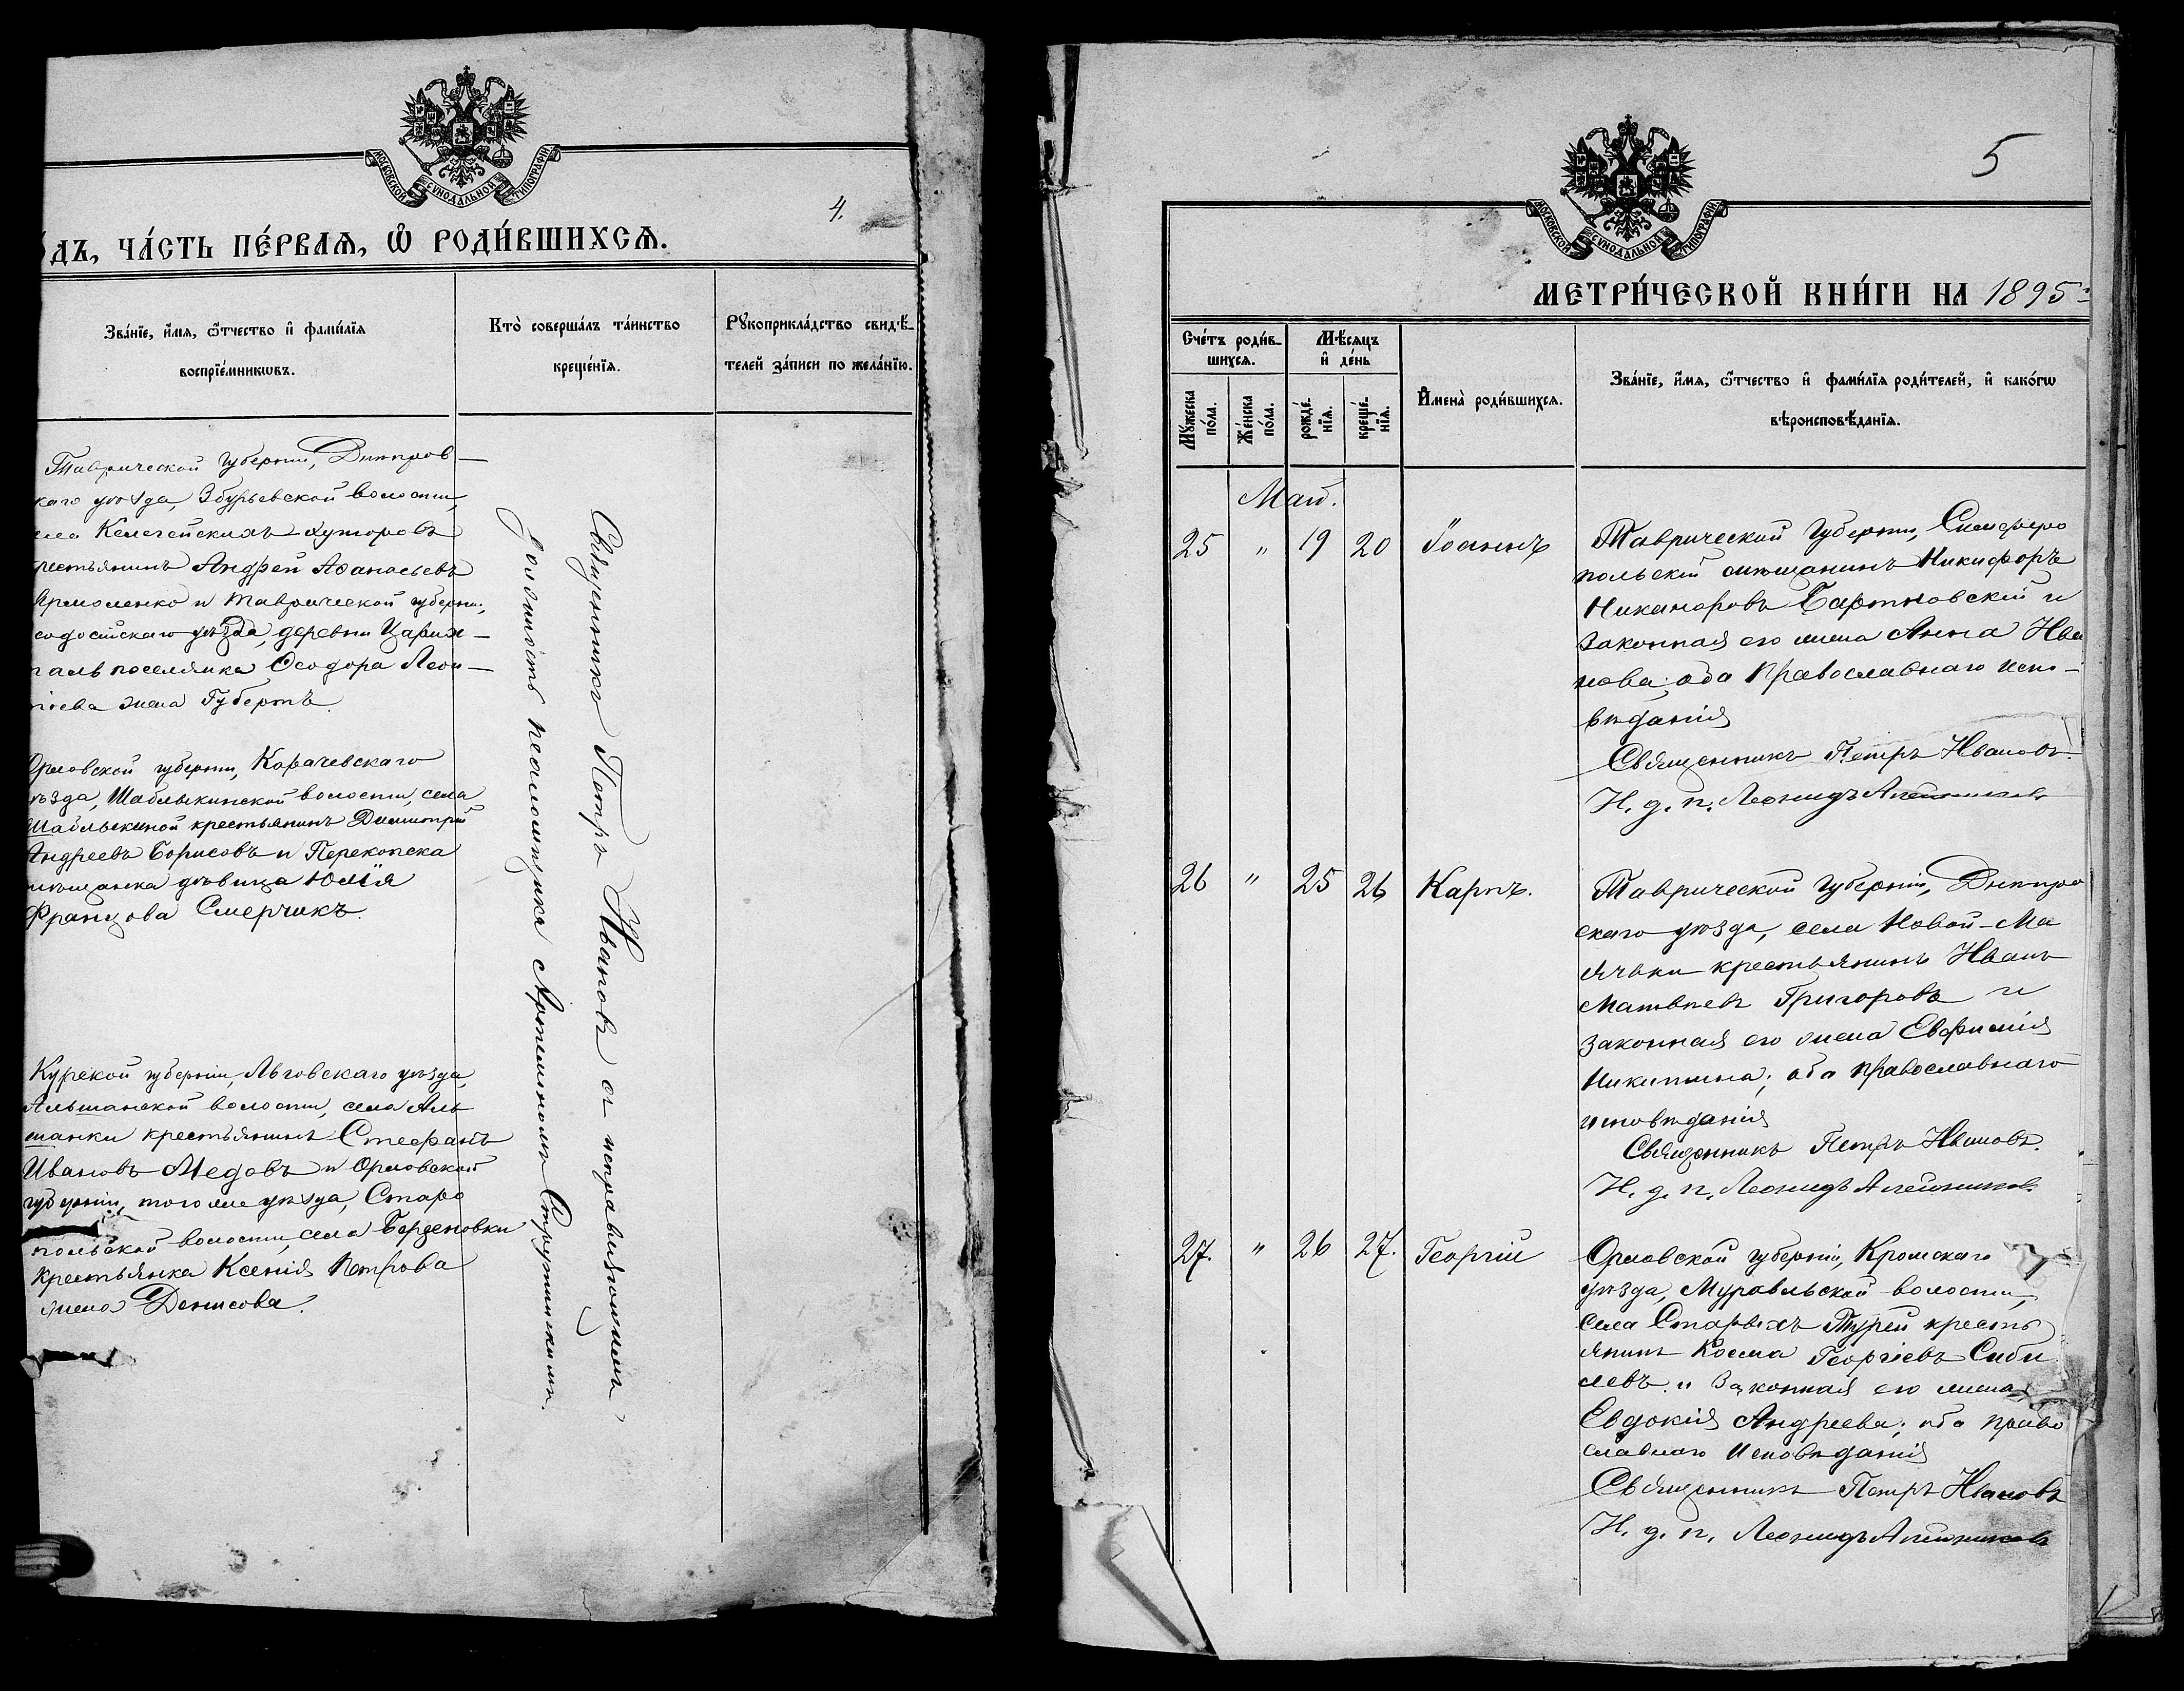 МОСКОВСКОЙ СѴНОДАЛЬНОЙ ТИПОГРАФІИ
4.
ДЪ, ЧА́СТЬ ПЕ́РВАѦ, Ѽ РОДИ́ВШИХСѦ.
Зва́нїе, и҆́мѧ, ѻ҆́тчество и҆ фами́лїѧ
воспрїе́мникѡвъ.
Кто̀ соверша́лъ та́инство
креще́нїѧ.
Рꙋкоприкла́дство свидѣ́-
телей за́писи по жела́нїю.
Таврической губерніи, Днѣпров-
каго уѣзда, Збурьевской волости,
Келегейскихъ хуторовъ
рестьянинъ Андрей Аѳанасьевъ
Ярмоленко и Таврической губерніи,
еодосійскаго уѣзда, деревни Цариж-
поселянка Ѳеодора Леон-
тіева жена Губертъ.
Орловской губерніи, Карачевскаго
уѣзда, Шаблыкинской волости, села
Шаблыкиной крестьянинъ Димитрій
Андреевъ Борисовъ и Перекопска
мѣщанка дѣвица Юлія
Францова Смерчикъ.
Курской губерніи, Льговскаго уѣзда,
Альшанской волости, села Аль
шанки крестьянинъ Стефанъ
Ивановъ Медовъ и Орловской
губерніи, того же уѣзда, Старо
польской волости, села
крестьянка Ксенія Петрова
жена Денисова.
Священникъ Петръ Ивановъ съ исправляющимъ
должность псаломщика
МОСКОВСКОЙ СѴНОДАЛЬНОЙ ТИПОГРАФІИ
5
МЕТРИ́ЧЕСКОЙ КНИ́ГИ НА 1895
Сче́тъ роди́в-
шихсѧ.
Мѣ́сѧцъ
и҆ де́нь
И҆мена̀ роди́вшихсѧ.
Зва́нїе, и҆́мѧ, ѻ҆́тчество и҆ фами́лїѧ роди́телей, и҆ како́гѡ
вѣроисповѣ́данїѧ.
Мꙋ́жеска
по́ла.
Же́нска
по́ла.
рожде́-
нїѧ.
креще́-
нїѧ.
Май.
25 " 19 20 Іоаннъ
Таврической губерніи, Симферо
польскій мѣщанинъ Никифоръ
Никаноровъ Бартновскій и
законная его жена Анна Ива
нова; оба православнаго испо-
вѣданія
Священникъ Петръ Ивановъ.
И. д. п. Леонидъ
26 " 25 26 Карпъ.
Таврической губерніи, Днѣпро
скаго уѣзда, села Новой-Ма
ячки крестьянинъ Иванъ
Матвѣевъ Григоровъ и
законная его жена Евфимія
Никитина; оба православнаго
исповѣданія
Священникъ Петръ Ивановъ.
И. д. п. Леонидъ
27. " 26 27. Георгій
Орловской губерніи, Кромскаго
уѣзда, Муравльской волости,
села Старыхъ Турей кресть
янинъ Косма Георгіевъ Сиби
левъ и законная его жена
Евдокія Андреева; оба право
славнаго исповѣданія
Священникъ Петръ Ивановъ
И. д. п. Леонидъ